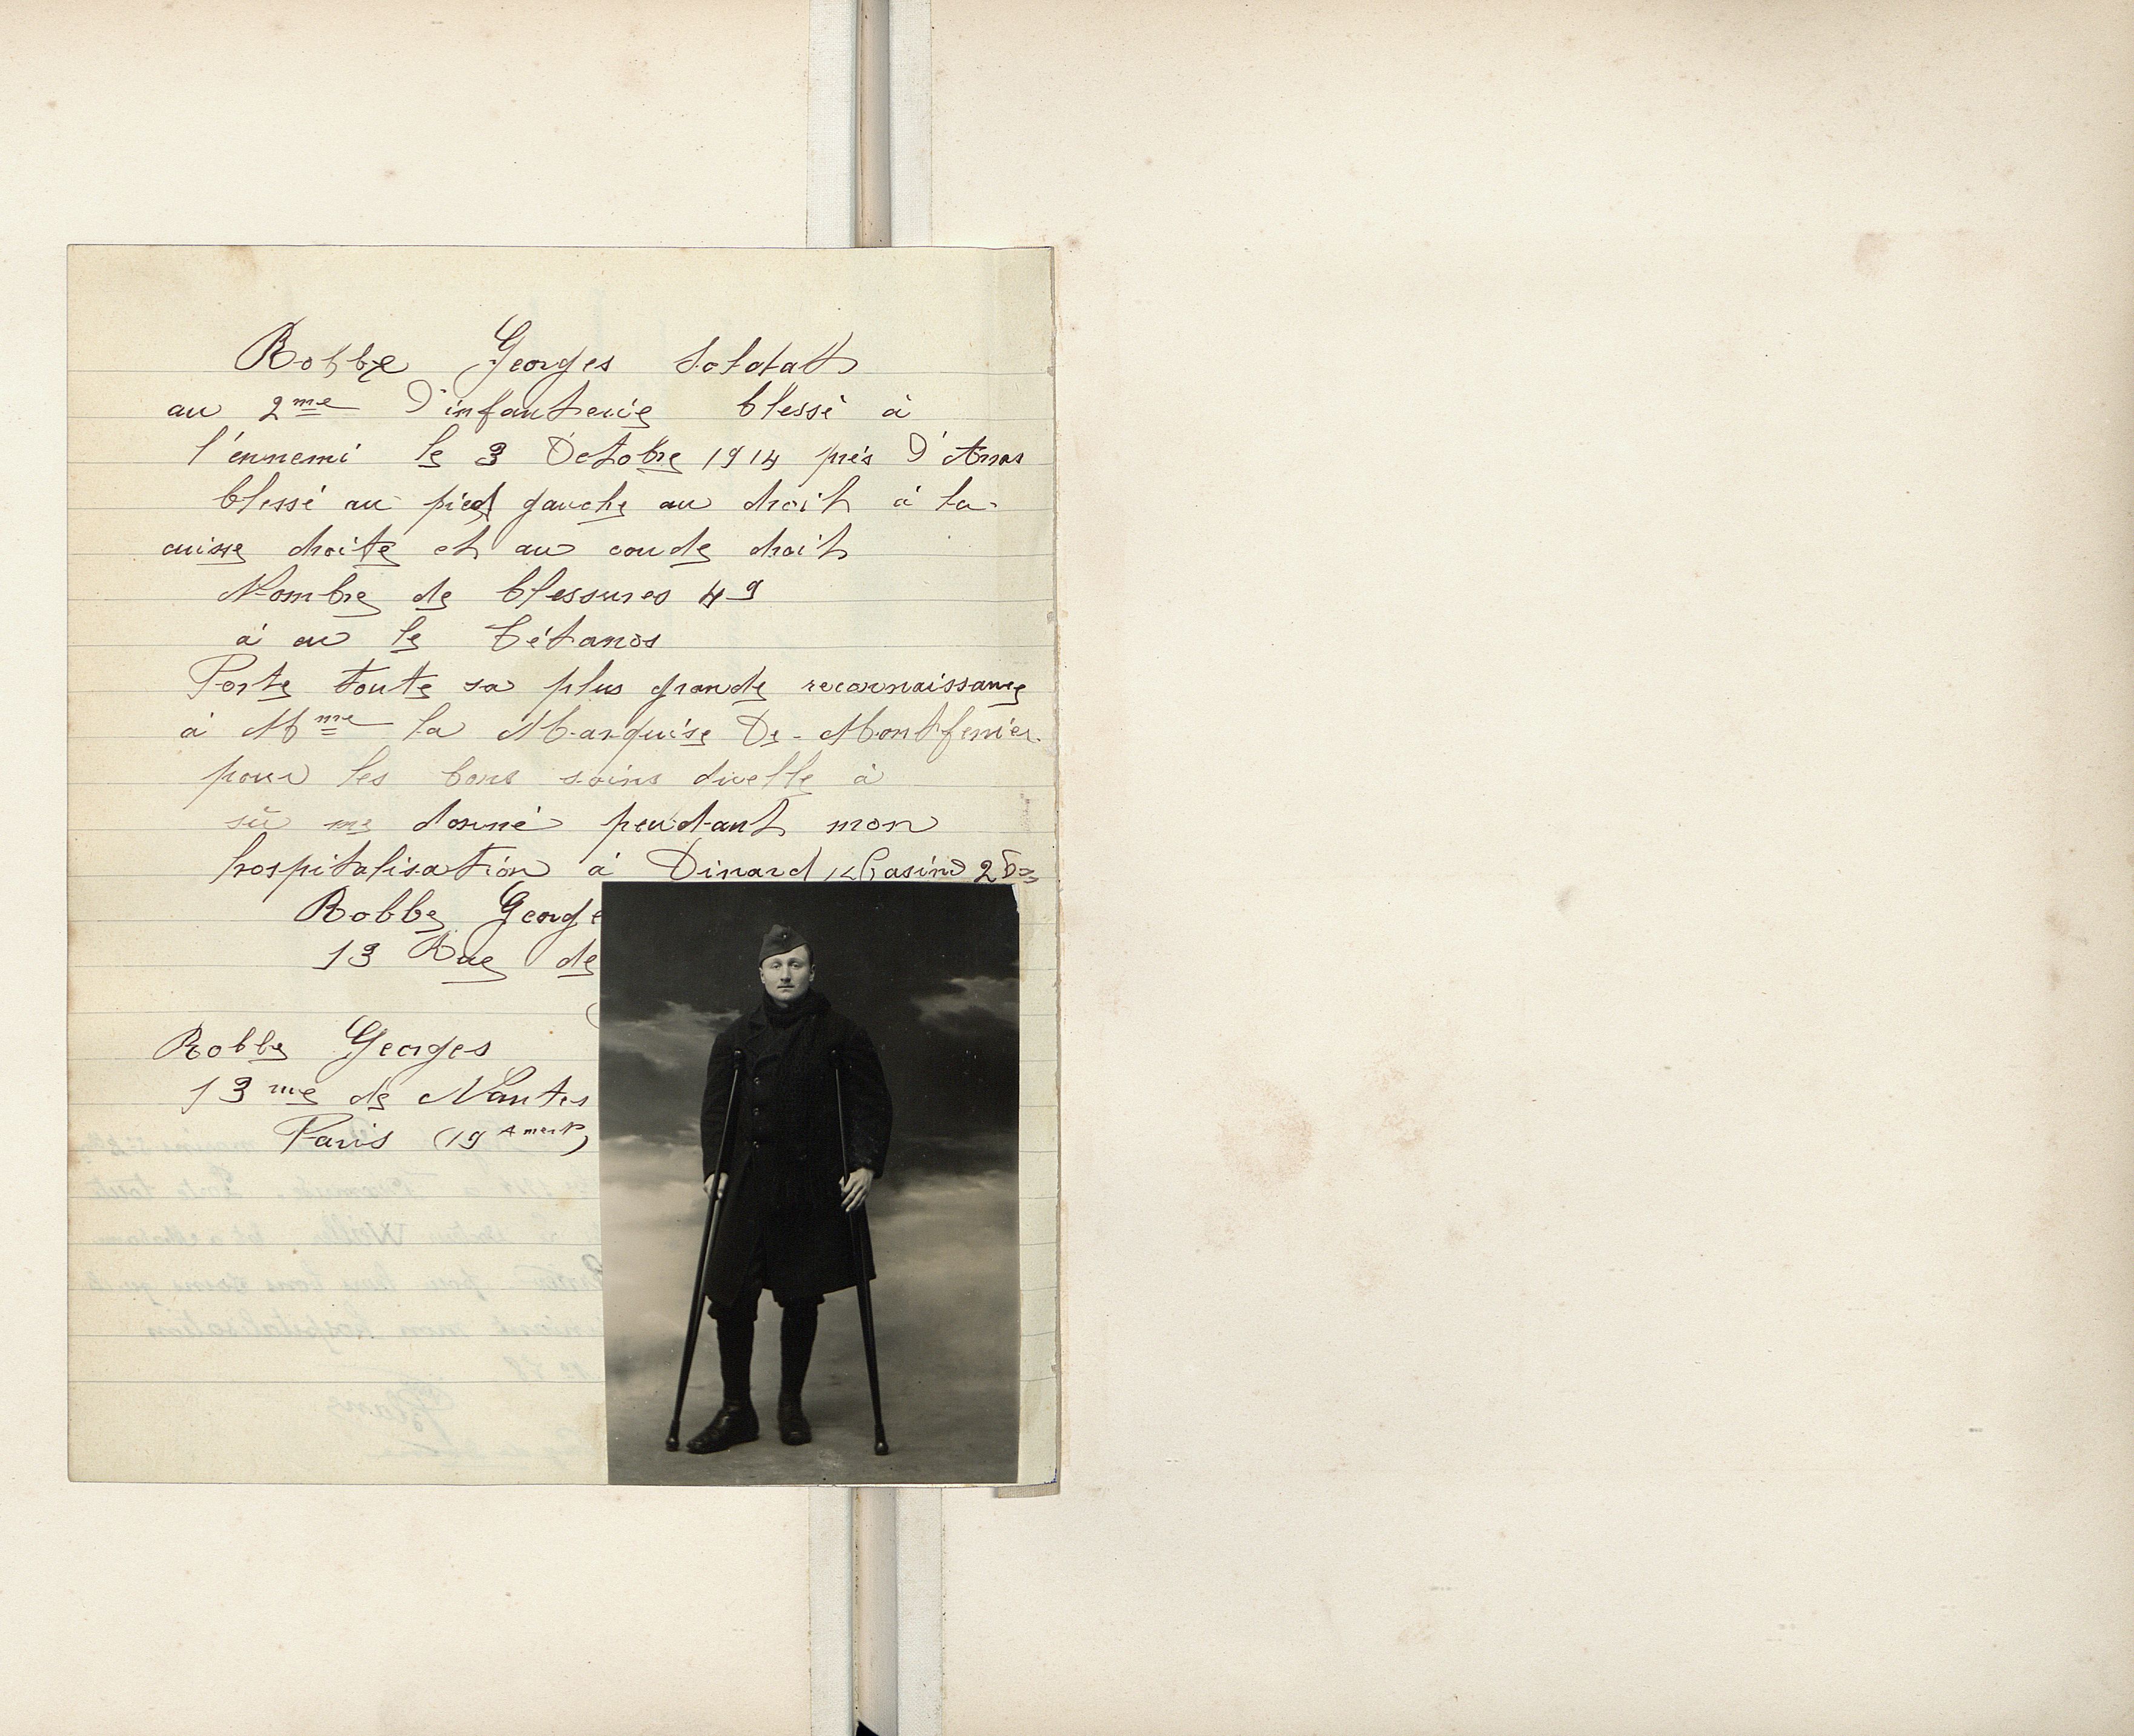 Robbe Georges Soldatt
au 2me D'infanterie blessé à
l'énnemi le 3 Octobre 1914 prés D'Arras
blessé au pied gauche au droit à la
cuisse droite et au coude droit
Nombre de blessures 49
à eu le tétanos
Porte toute sa plus grande reconnaissance
à Mme la Marquise De Montferrier
pour les bons soins
sû me donné pendant mon
hospitalisation à Dinard Casino
Robbe George
13 Rue de
Robbe Georges
13 rue de Nantes
Paris (19